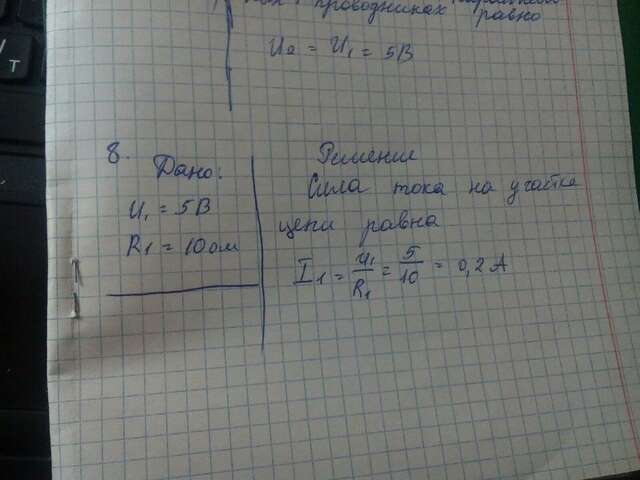 проводниках
равно
U₂ = U₁ = 5В
8.
Дано:
U₁ = 5В
R₁ = 10 ом
Решение
Сила тока на участке
цепи равна
I₁ = U₁/R₁ = 5/10 = 0,2 А